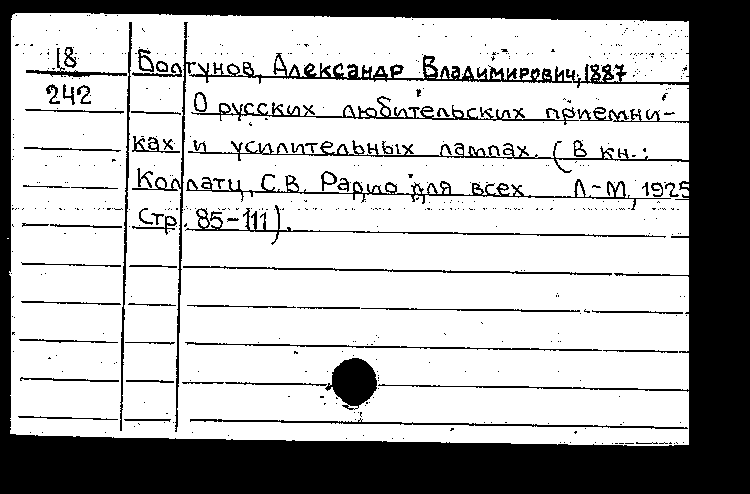 18
242
Болтунов, Александр Владимирович, 1887
О русских любительских приемни-
ках и усилительных лампах. (В кн.:
Коллатц, С.В. Радио для всех. Л-М, 1925
Стр. 85-111).